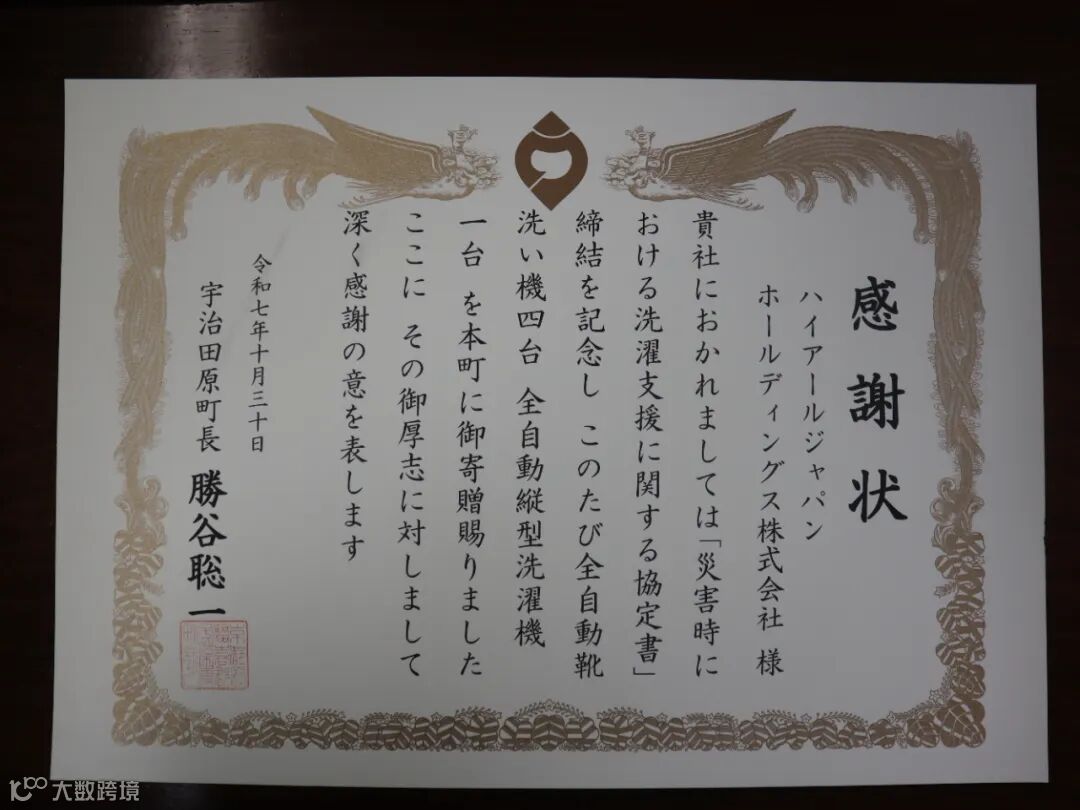 感謝状
ハイアールジャパン
ホールディングス株式会社 様
貴社におかれましては「災害時に
おける洗濯支援に関する協定書」
締結を記念し このたび全自動靴
洗い機四台 全自動縦型洗濯機
一台 を本町に御寄贈賜りました
ここに その御厚志に対しまして
深く感謝の意を表します
令和七年十月三十日
宇治田原町長 勝谷聡一
大数跨境